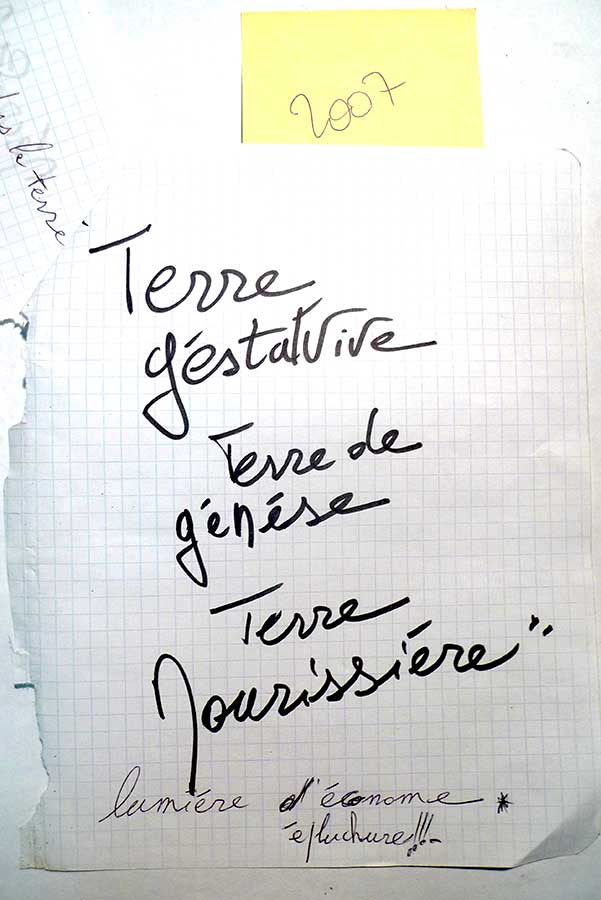 2007
la terre
Terre
géstatVive
Terre de
génése
Terre
Nourissiére"
lumiére d'économe *
épluchure!!!